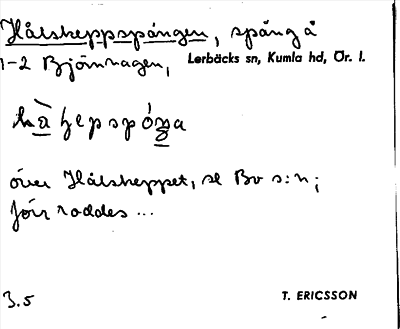 Hålsheppspången, spång å
1-2 Björnhagen, Lerbäcks sn, Kumla hd, Ör. l.
över Hålsheppet, se Bv s:n;
förr roddes ...
3.5
T. ERICSSON